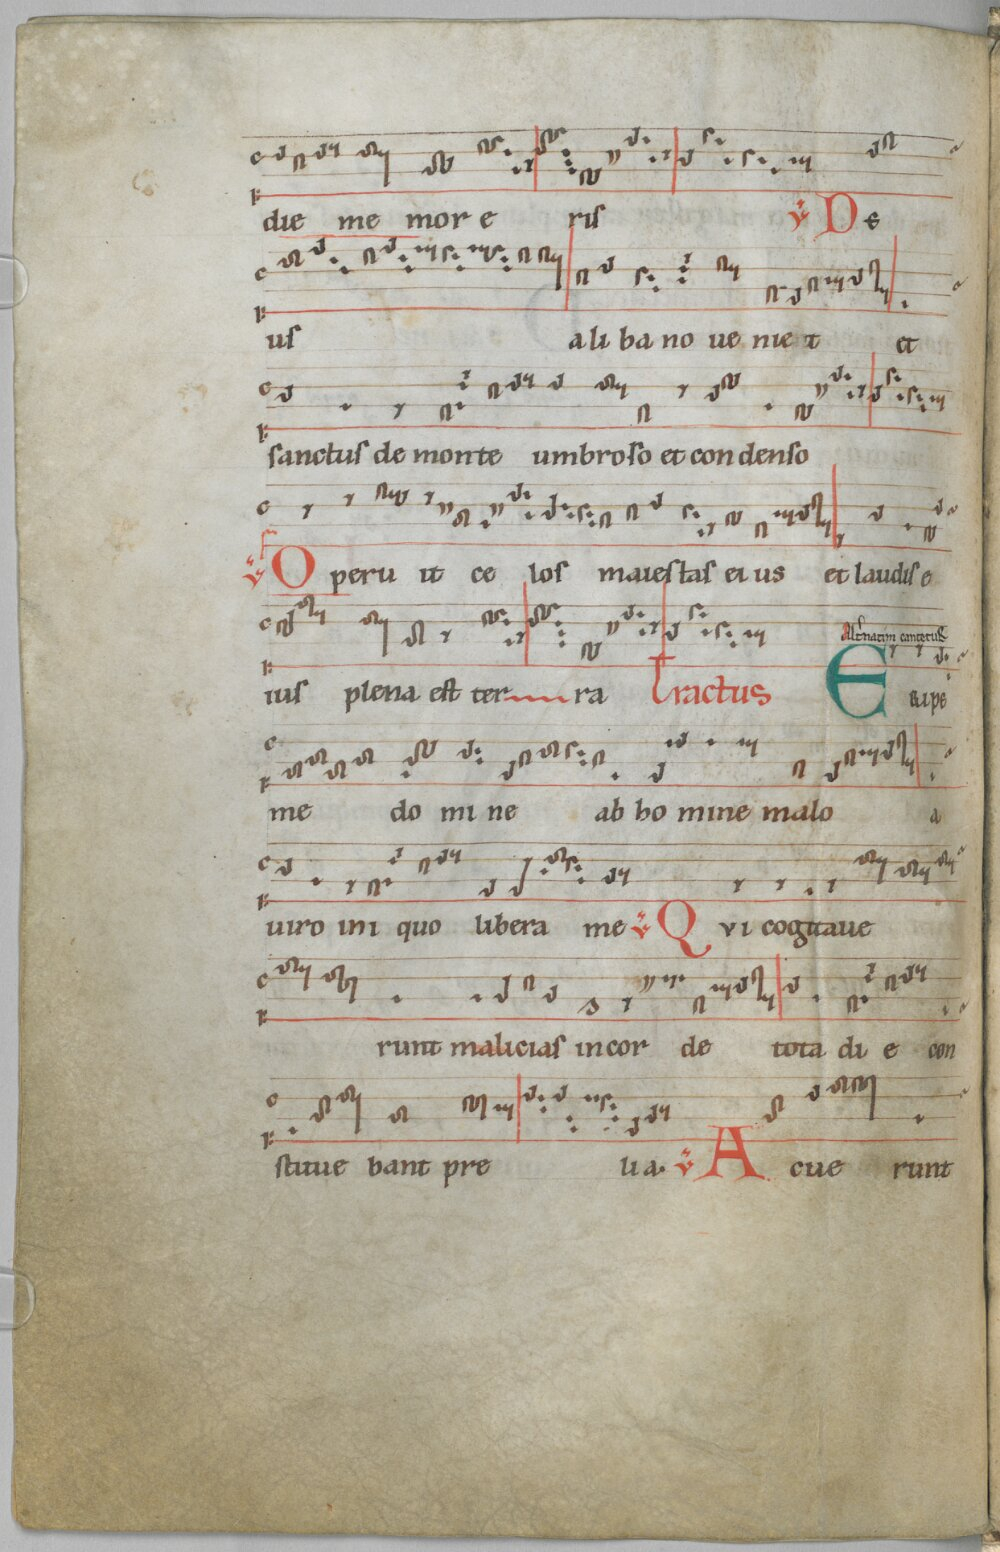 die me mor e ris ℣ De
us a li ba no ue niet et
sanctus de monte umbroso et condenso
℣ Operu it ce los maiestas ei us et laudis e
Alternatim cantetur
ius plena est ter ra Tractus Eripe
me do mi ne ab ho mine malo a
uiro ini quo libera me ℣ Qvi cogitaue
runt malicias incor de tota di e con
stitue bant pre lia. ℣ Acue runt